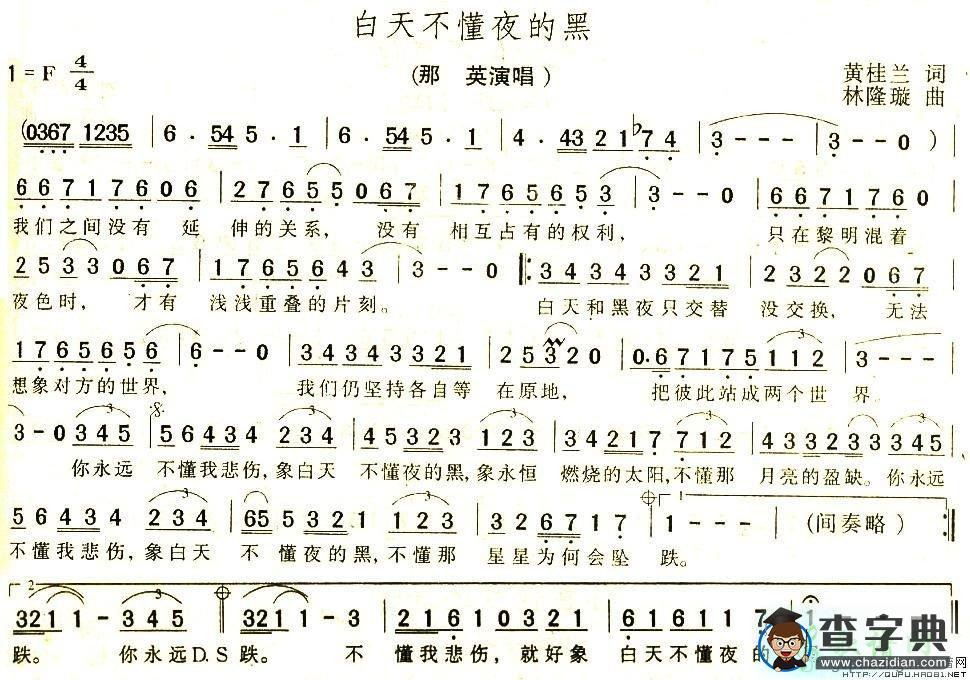 白天不懂夜的黑
1 = F 4/4
(那 英演唱)
黄桂兰 词
林隆璇 曲
(0367 1235 | 6· 54 5· 1 | 6· 54 5· 1 | 4· 43 21 ♭7 4 | 3 - - - | 3 - - 0 )
6 6 7 1 7 6 0 6 | 2 7 6 5 5 0 6 7 | 1 7 6 5 6 5 3 | 3 - - 0 | 6 6 7 1 7 6 0
我们之间没有 延 伸的关系, 没有 相互占有的权利, 只在黎明混着
2 5 3 3 0 6 7 | 1 7 6 5 6 4 3 | 3 - - 0 |: 3 4 3 4 3 3 2 1 | 2 3 2 2 0 6 7
夜色时, 才有 浅浅重叠的片刻。 白天和黑夜只交替 没交换, 无法
1 7 6 5 6 5 6 | 6 - - 0 | 3 4 3 4 3 3 2 1 | 2 5 3 2 0 | 0· 6 7 1 7 5 1 1 2 | 3 - -
想象对方的世界, 我们仍坚持各自等 在原地, 把彼此站成两个世 界。
3 - 0 3 4 5 | 5 6 4 3 4 2 3 4 | 4 5 3 2 3 1 2 3 | 3 4 2 1 7 7 1 2 | 4 3 3 2 3 3 3 4 5
你永远 不懂我悲伤,象白天 不懂夜的黑,象永恒 燃烧的太阳,不懂那 月亮的盈缺。你永远
5 6 4 3 4 2 3 4 | 65 5 3 2 1 1 2 3 | 3 2 6 7 1 7 | 1 - - - | (间奏略) :|
不懂我悲伤,象白天 不 懂夜的黑,不懂那 星星为何会坠 跌。
3 2 1 1 - 3 4 5 | 3 2 1 1 - 3 | 2 1 6 1 0 3 2 1 | 6 1 6 1 1 7 | 1
跌。 你永远D.S 跌。 不 懂我悲伤,就好象 白天不懂夜的
查字典
www.chazidian.com
HTTP://QUPU.HAO81.NET